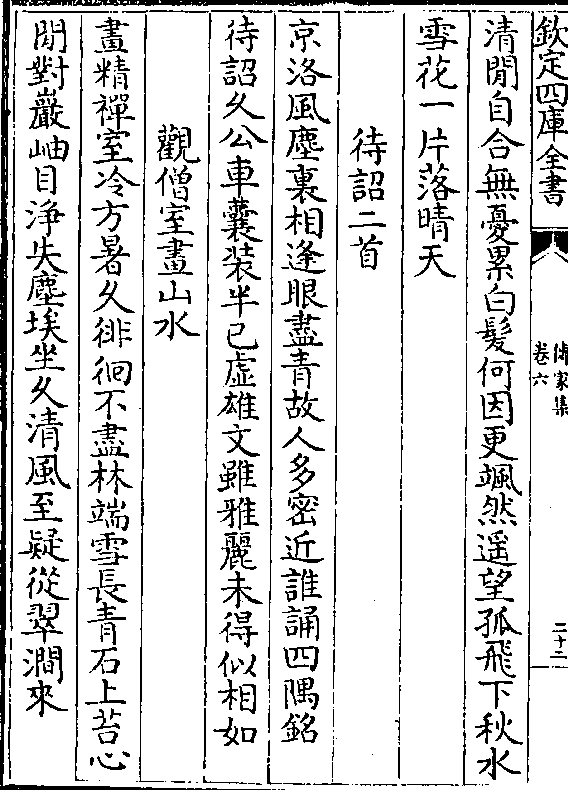 欽定四庫全書
傳家集
卷六
二十二
清閒自合無憂累白髮何因更颯然遥望孤飛下秋水
雪花一片落晴天
待詔二首
京洛風塵裏相逢眼盡青故人多密近誰誦四隅銘
待詔久公車囊装半已虚雄文雖雅麗未得似相如
觀僧室畫山水
畫精禪室冷方暑久徘徊不盡林端雪長青石上苔心
閒對巖岫目浄失塵埃坐久清風至疑從翠澗來